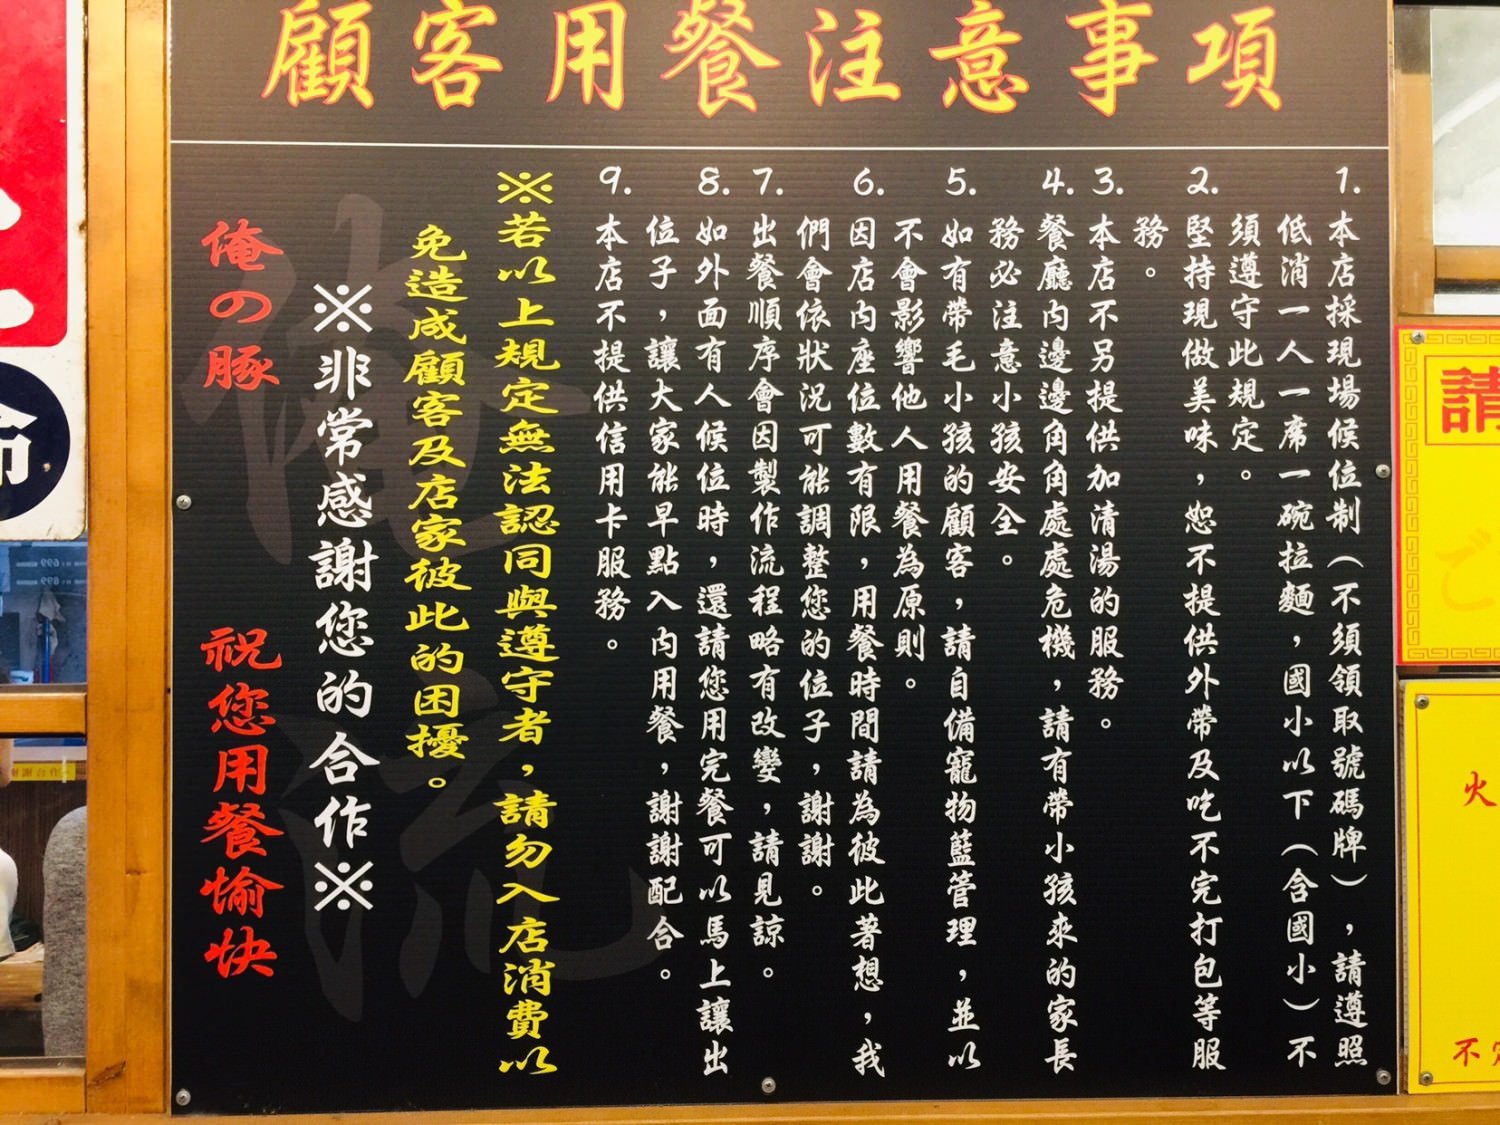 顧客用餐注意事項
1.本店採現場候位制(不須領取號碼牌),請遵照
低消一人一席一碗拉麵,國小以下(含國小)不
須遵守此規定。
2.堅持現做美味,恕不提供外帶及吃不完打包等服
務。
3.本店不另提供加清湯的服務。
4.餐廳內邊邊角角處處危機,請有帶小孩來的家長
務必注意小孩安全。
5.如有帶毛小孩的顧客,請自備寵物籃管理,並以
不會影響他人用餐為原則。
6.因店內座位數有限,用餐時間請為彼此著想,我
們會依狀況可能調整您的位子,謝謝。
7.出餐順序會因製作流程略有改變,請見諒。
8.如外面有人候位時,還請您用完餐可以馬上讓出
位子,讓大家能早點入內用餐,謝謝配合。
9.本店不提供信用卡服務。
※若以上規定無法認同與遵守者,請勿入店消費以
免造成顧客及店家彼此的困擾。
※非常感謝您的合作※
俺の豚 祝您用餐愉快
俺流
請
火
不
謝謝合作